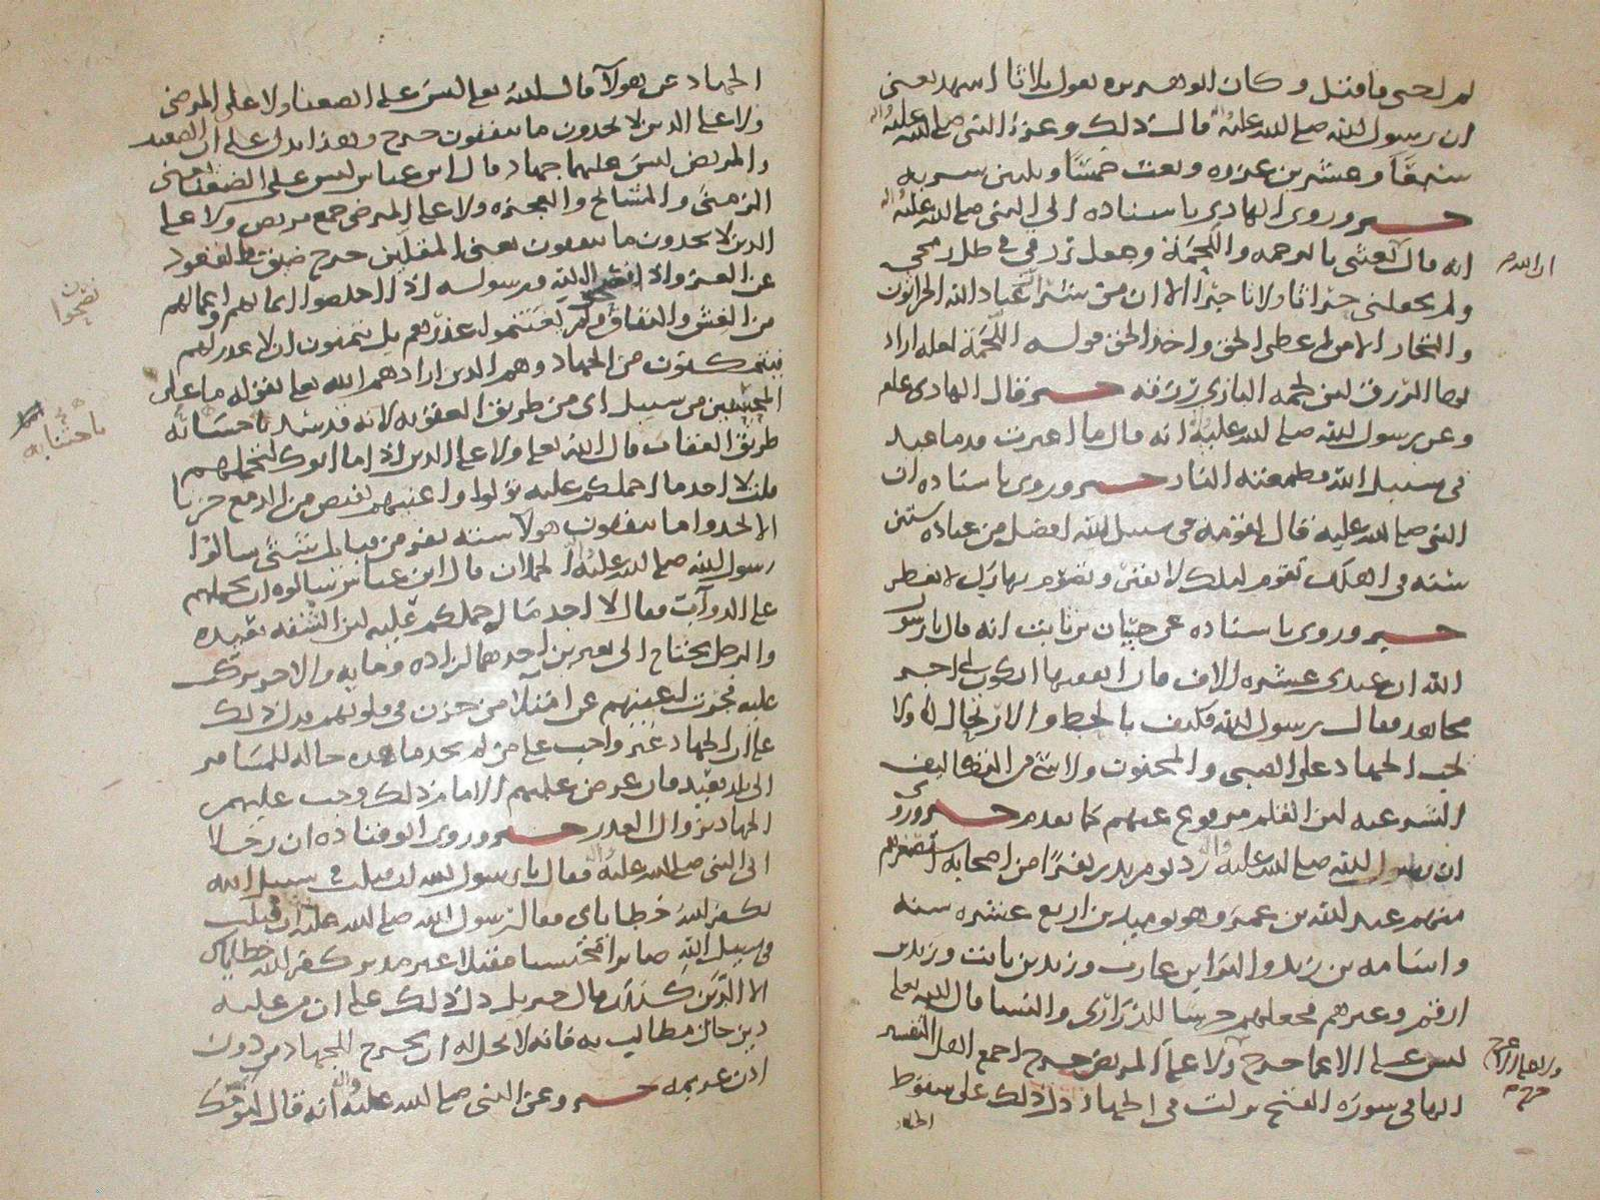 ثم احيى فاقتل وكان ابو هريره يقول ثلاثا اشهد يعني
ان رسول الله صلى الله عليه واله قال ذلك وغزا النبي صلى الله عليه واله
وعشرين غزوه وبعث خمسا وثلثين سريه
خبر وروى الهادي باسناده الى النبي صلى الله عليه واله
انه قال بعثني بالرحمه والملحمة وجعل رزقي في ظلال رمحي
ان الله
ولم يجعلني حراثا ولا تاجرا الا ان من شرار عباد الله الحراثون
والتجار الا من اعطى الحق واخذ الحق قوله الملحمة لعله اراد
بها الرزق لان لحمه البازي رزقه خبر قال الهادي علم
وعن رسول الله صلى الله عليه انه قال ما اغبرت قدما عبد
في سبيل الله فطمعته النار خبر وروى باسناده ان
النبي صلى الله عليه قال لنومة في سبيل الله افضل من عبادة ستين
سنه في اهلك تقوم ليلك لا تفتر وتصوم نهارك لا تفطر
خبر وروى باسناده عن بن ثابت انه قال يا رسول
الله ان عندي عشره الاف فان انفقتها ايكون لي اجر
مجاهد فقال رسول الله فكيف بالحط والارتحال ولا
يجب الجهاد على الصبي والمجنون ولا شي من التكاليف
الشرعيه لان القلم مرفوع عنهم كما تقدم خبر وروي
ان رسول الله صلى الله عليه واله رد يوم بدر نفرا من اصحابه استصغرهم
منهم عبد الله بن عمر وهو يوميذ بن اربع عشره سنه
واسامه بن زيد والبرا بن عازب وزيد بن ثابت وزيد بن
ارقم وغيرهم فجعلهم حرسا للذراري والنسا قال الله تعالى
ليس على الاعما حرج ولا على المريض حرج اجمع اهل التفسير
ولا على الاعرج
حرج
انها في سورة الفتح نزلت في الجهاد دل ذلك على سقوط
الجهاد
الجهاد عن هولا قال الله تعالى ليس على الضعفا ولا على المرضى
ولا على الذين لا يجدون ما ينفقون حرج وهذا يدل على ان الضعيف
والمريض ليس عليهما جهاد قال ابن عباس ليس على الضعفا يعني
الزمنى والمشايخ والعجزه ولا على المرضى جمع مريض ولا على
الذين لا يجدون ما ينفقون يعني المقلين حرج ضيق في القعود
عن الغزو اذا لله ورسوله اذا اخلصوا ايمانهم واعمالهم
نصحوا
من الغش والنفاق ولم يغتنموا عذرهم بل يتمنون ان لا عذر لهم
من الجهاد وهم الذين ارادهم الله تعالى بقوله ما على
المحسنين من سبيل اي من طريق العقوبه لانه قد سد باحسانه
باحسانه
طريق العقاب قال الله تعالى ولا على الذين اذا ما اتوك لتحملهم
قلت لا اجد ما احملكم عليه تولوا واعينهم تفيض من الدمع حزنا
الا يجدوا ما ينفقون هولا سته نفر من قبايل شتى سالوا
رسول الله صلى الله عليه واله الحملان قال ابن عباس سالوه ان يحملهم
على الدواب فقال لا اجد ما احملكم عليه لان الشقه بعيده
والرجل يحتاج الى بعيرين احدهما لزاده ومايه والاخر يركب
عليه فجرت اعينهم من حزن في قلوبهم فدل ذلك
على ان الجهاد غير واجب على من لم يجد ما هذه حاله للمسافر
الى بلد بعيد فان عرض عليهم الامام ذلك وجب عليهم
الجهاد بزوال العذر خبر وروى ابو قتاده ان رجلا
اتى النبي صلى الله عليه واله فقال يا رسول الله ان قتلت في سبيل الله
يكفر الله خطاياي فقال رسول الله صلى الله عليه ان قتلت
في سبيل الله صابرا محتسبا مقبلا غير مدبر كفر الله خطاياك
الا الدين كذلك قال جبريل دل ذلك على ان من عليه
دين حال مطالب به فانه لا يحل له ان يخرج للجهاد من دون
اذن غريمه خبر وعن النبي صلى الله عليه واله انه قال